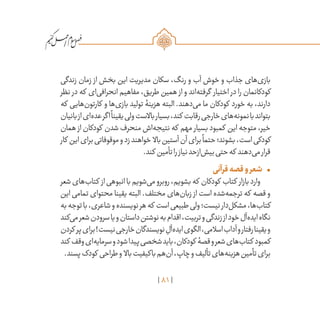 بازی‌های جذاب و خوش آب و رنگ، سکان مدیریت این بخش از زمان زندگی
کودکانمان را در اختیار گرفته‌اند و از همین طریق، مفاهیم انحرافی‌ای که در نظر
دارند، به خورد کودکان ما می‌دهند. البته هزینهٔ تولید بازی‌ها و کارتون‌هایی که
بتواند با نمونه‌های خارجی رقابت کند، بسیار بالاست ولی یقیناً اگر عده‌ای از بانیان
خیر، متوجه این کمبود بسیار مهم که نتیجه‌اش منحرف شدن کودکان از همان
کودکی است، بشوند؛ حتماً برای آن آستین بالا خواهند زد و موقوفاتی برای این کار
قرار می‌دهند که حتی بیش‌ازحد نیاز را تأمین کند.
• شعر و قصه قرآنی
وارد بازار کتاب کودکان که بشویم، روبرو می‌شویم با انبوهی از کتاب‌های شعر
و قصه که ترجمه‌شده است از زبان‌های مختلف. البته یقینا محتوای تمامی این
کتاب‌ها، مشکل‌دار نیست؛ ولی طبیعی است که هر نویسنده و شاعری، با توجه به
نگاه ایده‌آل خود از زندگی و تربیت، اقدام به نوشتن داستان و یا سرودن شعر می‌کند
و یقینا رفتار و آداب اسلامی، الگوی ایده‌آل نویسندگان خارجی نیست! برای پر کردن
کمبود کتاب‌های شعر و قصهٔ کودکان، باید شخصی پیدا شود و سرمایه‌ای وقف کند
برای تأمین هزینه‌های تألیف و چاپ، آن‌هم باکیفیت بالا و طراحی کودک پسند.
| ۸۱ |